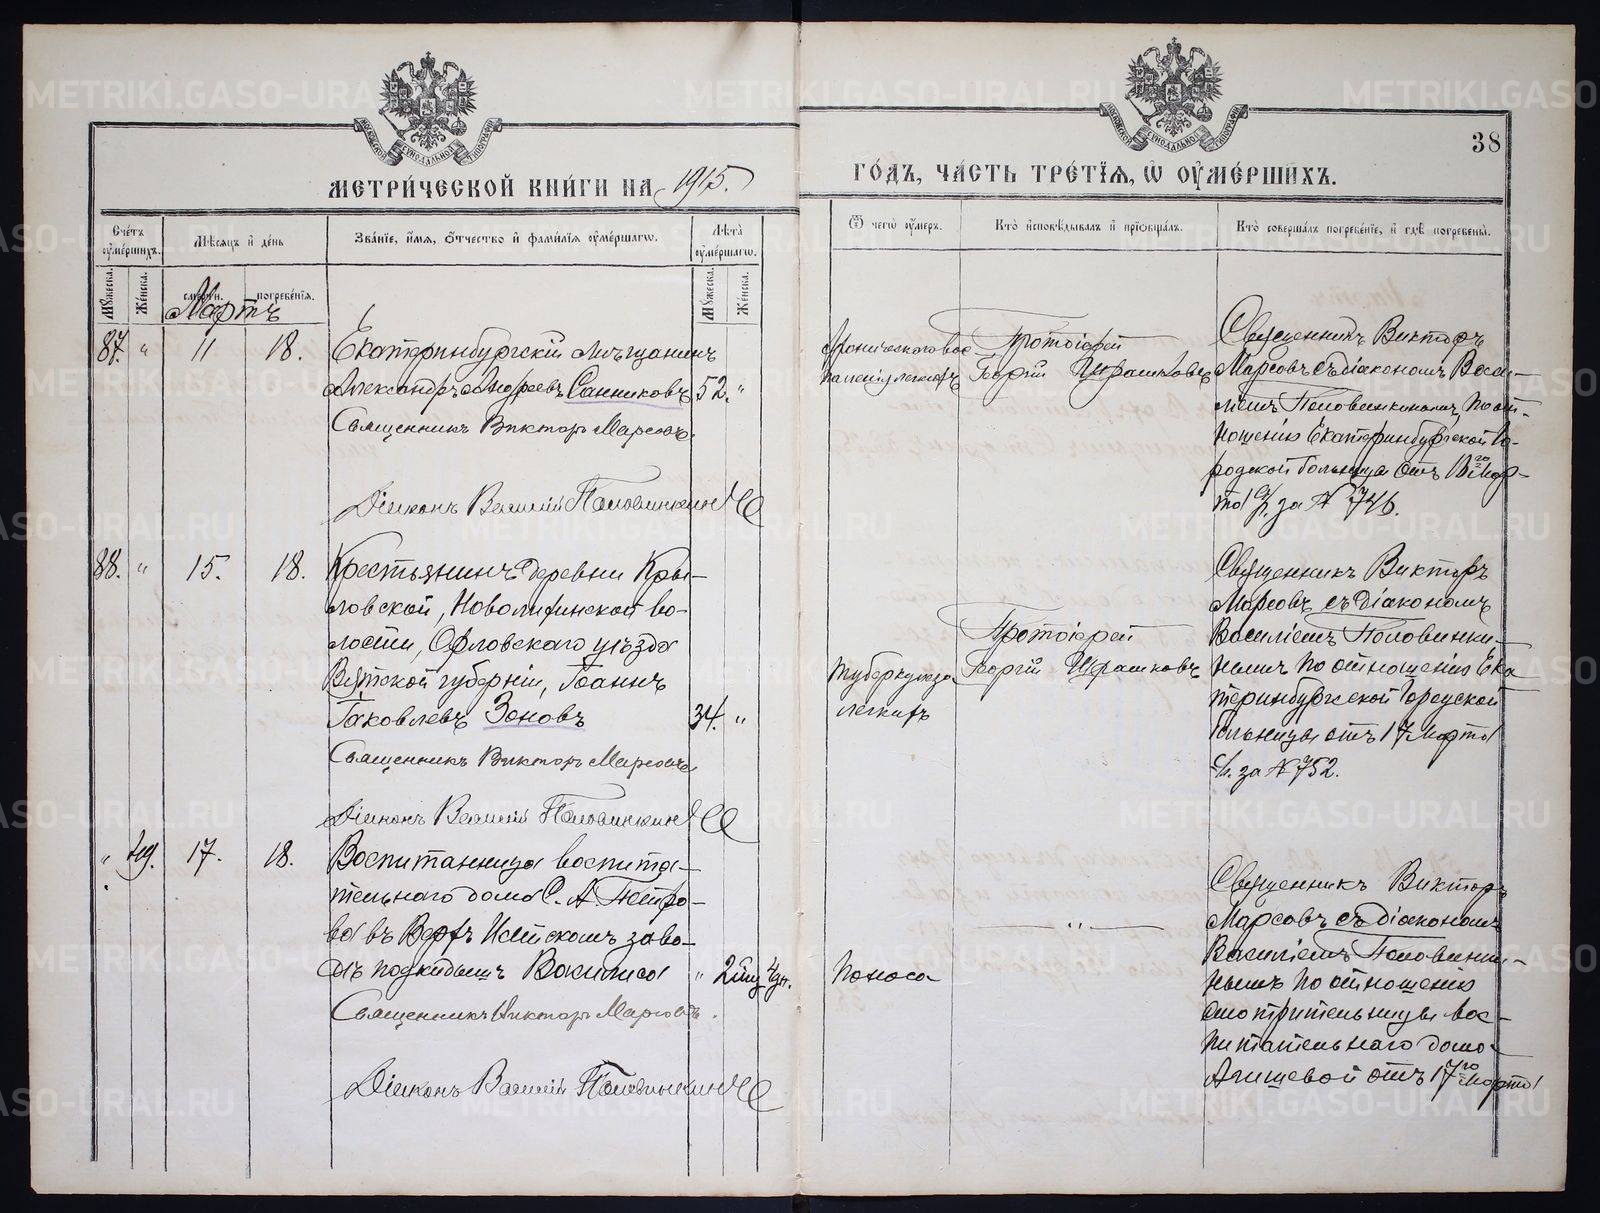 МЕТРИ́ЧЕСКОЙ КНИ́ГИ НА 1915.
ГО́ДЪ, ЧА́СТЬ ТРЕ́ТЇѦ, Ѡ ОУ҆МЕ́РШИХЪ.
38
Сче́тъ оу҆ме́ршихъ.
Мѣ́сяцъ и҆ де́нь
Зва́нїе, и҆́мѧ, ѻ҆́тчество и҆ фами́лїѧ оу҆ме́ршагѡ.
Лѣ́та оу҆ме́ршагѡ.
Ѿ чегѡ̀ оу҆́меръ.
Кто̀ и҆сповѣ́дывалъ и҆ прїѻбща́лъ.
Кто̀ соверша́лъ погребе́нїе, и҆ гдѣ̀ погребены̀.
Мꙋ́жеска.
Же́нска.
сме́рти.
погребе́нїѧ.
Мꙋ́жеска.
Же́нска.
Мартъ
87. " 11 18.
Екатеринбургскій мѣщанинъ
Александръ Андреевъ Санниковъ 52. "
Священникъ Викторъ Марсовъ
Діаконъ Василій Половинкинъ
Хроническаго вос
паленія легкихъ
Протоіерей
Георгій
Священникъ Викторъ
Марсовъ съ діакономъ Васи-
ліемъ Половинкинымъ, по от-
ношенію Екатеринбургской Го-
родской больницы отъ
та с/г. за № 746.
88. " 15. 18.
Крестьянинъ деревни Кры-
ловской, во-
лости, Орловскаго уѣзда
Вятской губерніи, Іоаннъ
Іаковлевъ Зоновъ 34. "
Священникъ Викторъ Марсовъ
Діаконъ Василій Половинкинъ
Туберкулеза
легкихъ
Протоіерей
Георгій
Священникъ Викторъ
Марсовъ съ діакономъ
Василіемъ Половинки-
нымъ по отношенію Ека
теринбургской Городской
больницы отъ 17 Марта
с/г. за № 752.
" 17. 18.
Воспитанница воспита-
тельнаго дома С. А. Петро-
ва въ Верхъ Исетскомъ заво-
дѣ подкидышъ Василиса "
Священникъ Викторъ Марсовъ.
Діаконъ Василій Половинкинъ
Поноса
"
Священникъ Викторъ
Марсовъ съ діакономъ
Василіемъ Половинки-
нымъ по отношенію
смотрительницы вос-
питательнаго дома
отъ 17го Марта